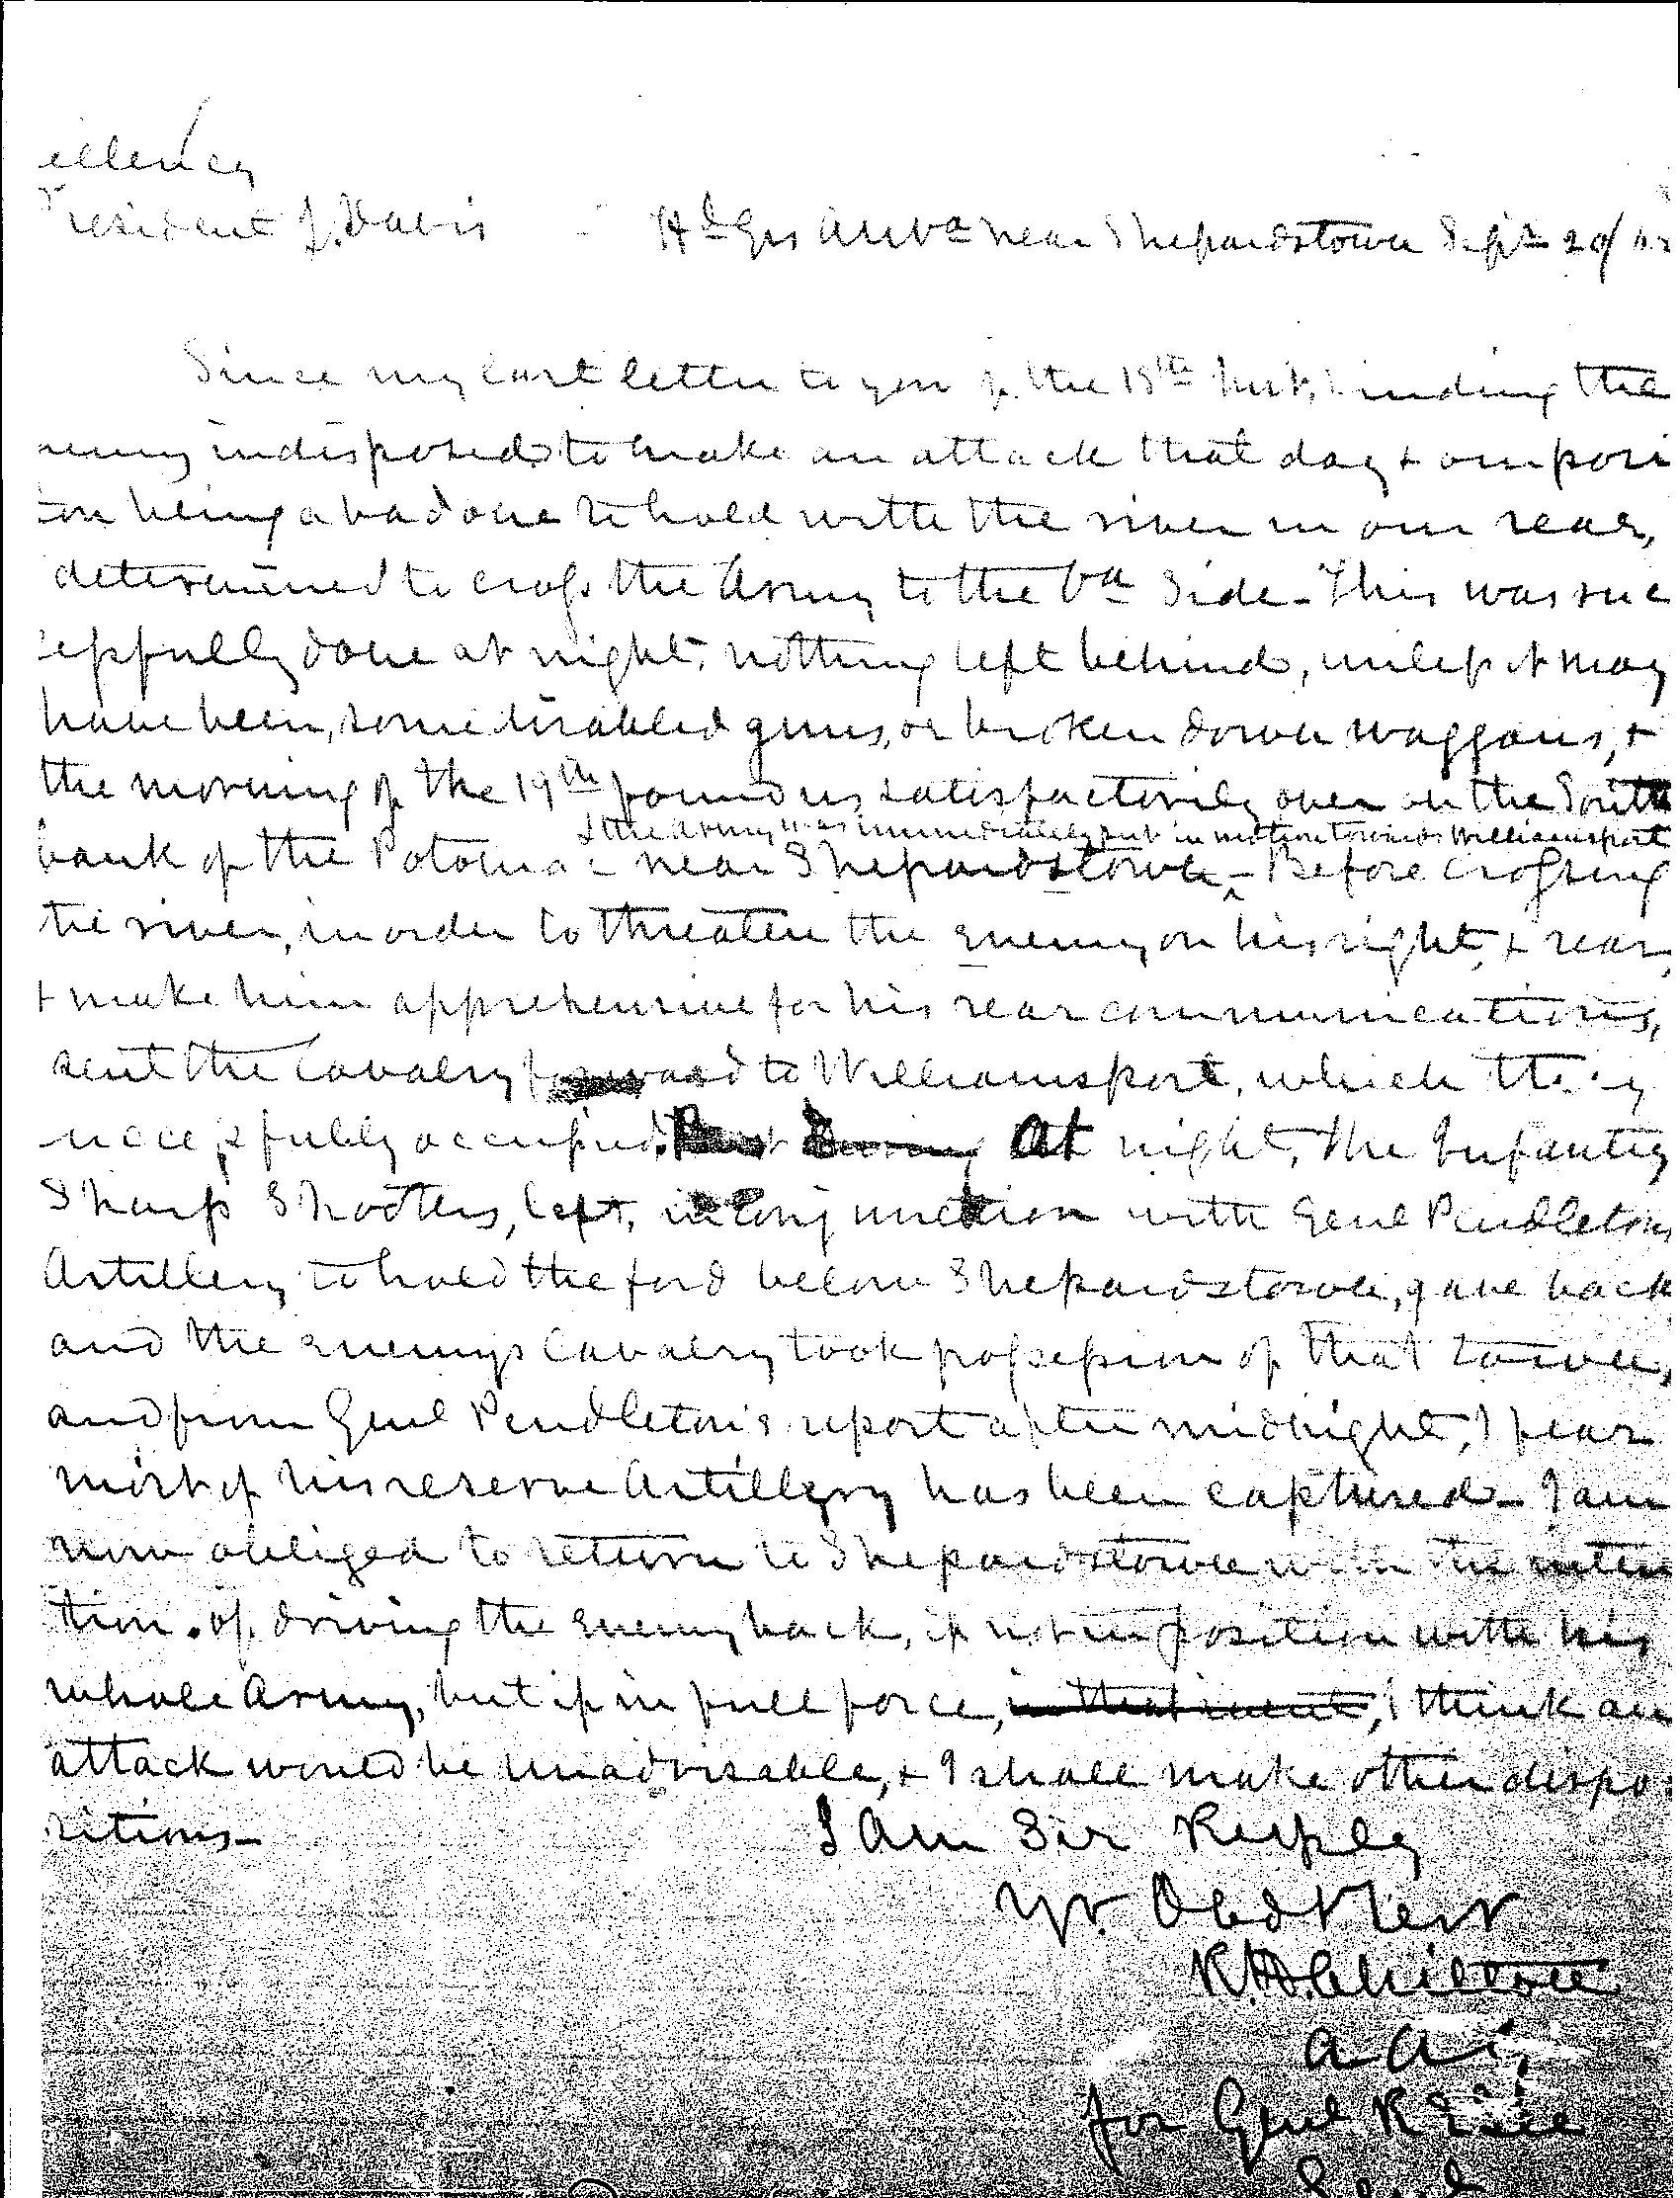 ellency
resident J. Davis - Hd Qrs ANVa near Shepardstown Sept 20/62
Since my last letter to you of the 18th Inst, finding the
nemy indisposed to make an attack that day & our posi
ion being a bad one to hold with the river in our rear,
determined to cross the Army to the Va Side - This was suc
essfully done at night, nothing left behind, unless it may
have been, some disabled guns, or broken down waggons, &
the morning of the 19th found us satisfactorily over on the South
& the Army was immediately put in motion towards Williamsport
bank of the Potomac near Shepardstown - Before Crossing
the river, in order to threaten the enemy on his right, & rear,
& make him apprehensive for his rear communications,
sent the Cavalry forward to Williamsport, which they
uccessfully occupied. But During At night, the Infantry
Sharp Shooters, left, in Conjunction with Genl Pendletons
Artillery to hold the ford below Shepardstown, gave back
and the enemys Cavalry took possession of that town,
and from Genl Pendleton's report after midnight, I fear
most of his reserve Artillery has been captured - I am
now obliged to return to Shepardstown with the inten
tion of driving the enemy back, if not in position with his
whole Army, but if in full force, in that event, I think an
attack would be unadvisable, & I shall make other dispo
sitions -
I Am Sir Resply
Yr. Obdt Servt
R.H. Chilton
A A G
for Genl R E Lee